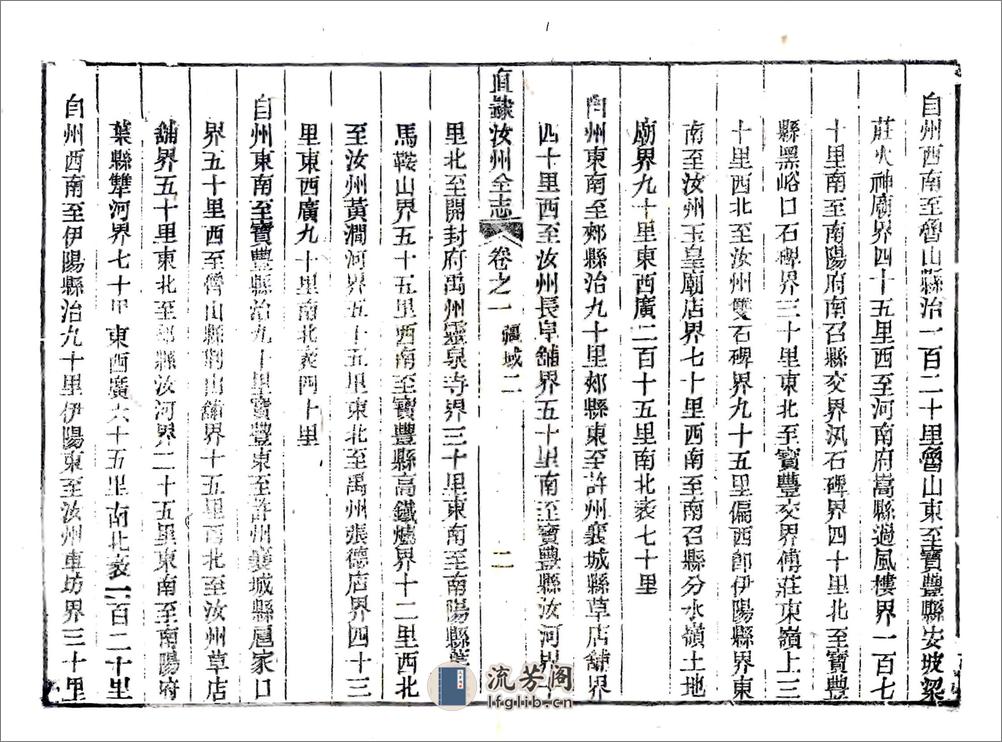 自州西南至魯山縣治一百二十里魯山東至寶豐縣安坡梁
莊火神廟界四十五里西至河南府嵩縣過風樓界一百七
十里南至南陽府南召縣交界汛石碑界四十里北至寶豐
縣黑峪口石碑界三十里東北至寶豐交界傅莊東嶺上三
十里西北至汝州雙石碑界九十五里偏西卽伊陽縣界東
南至汝州玉皇廟店界七十里西南至南召縣分水嶺土地
廟界九十里東西廣二百十五里南北袤七十里
自州東南至郟縣治九十里郟縣東至許州襄城縣草店舖界
四十里西至汝州長阜舖界五十里南至寶豐縣汝河界十
里北至開封府禹州靈泉寺界三十里東南至南陽縣葉
馬鞍山界五十五里西南至寶豐縣高鐵爐界十二里西北
至汝州黃澗河界五十五里東北至禹州張德店界四十三
里東西廣九十里南北袤四十里
自州東南至寶豐縣治九十里寶豐東至許州襄城縣扈家口
界五十里西至魯山縣荆山舖界十五里西北至汝州草店
舖界五十里東北至郟縣汝河界二十五里東南至南陽府
葉縣犨河界七十里東西廣六十五里南北袤一百二十里
自州西南至伊陽縣治九十里伊陽東至汝州車坊界三十里
直隸汝州全志 卷之一 疆域二 二
流芳阁
lfglib.cn